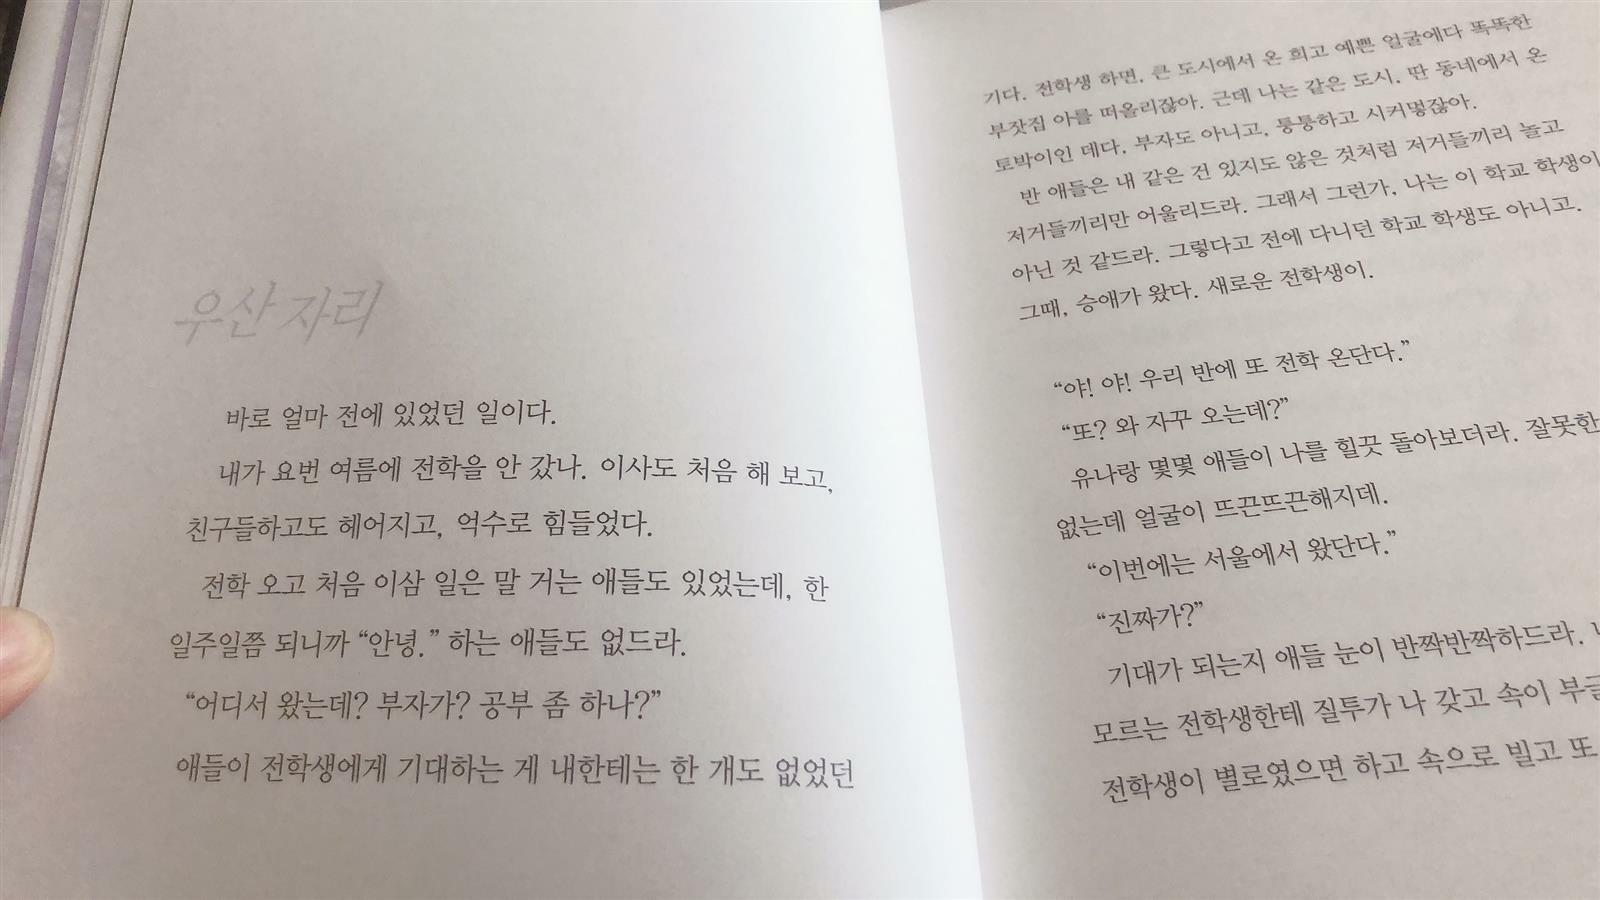 우산 자리
바로 얼마 전에 있었던 일이다.
내가 요번 여름에 전학을 안 갔나. 이사도 처음 해 보고,
친구들하고도 헤어지고, 억수로 힘들었다.
전학 오고 처음 이삼 일은 말 거는 애들도 있었는데, 한
일주일쯤 되니까 “안녕.” 하는 애들도 없드라.
“어디서 왔는데? 부자가? 공부 좀 하나?”
애들이 전학생에게 기대하는 게 내한테는 한 개도 없었던
기다. 전학생 하면, 큰 도시에서 온 희고 예쁜 얼굴에다 똑똑한
부잣집 아를 떠올리잖아. 근데 나는 같은 도시, 딴 동네에서 온
토박이인 데다, 부자도 아니고, 통통하고 시커멓잖아.
반 애들은 내 같은 건 있지도 않은 것처럼 저거들끼리 놀고
저거들끼리만 어울리드라. 그래서 그런가, 나는 이 학교 학생이
아닌 것 같드라. 그렇다고 전에 다니던 학교 학생도 아니고.
그때, 승애가 왔다. 새로운 전학생이.
“야! 야! 우리 반에 또 전학 온단다.”
“또? 와 자꾸 오는데?”
유나랑 몇몇 애들이 나를 힐끗 돌아보더라. 잘못한
없는데 얼굴이 뜨끈뜨끈해지데.
“이번에는 서울에서 왔단다.”
“진짜가?”
기대가 되는지 애들 눈이 반짝반짝하드라.
모르는 전학생한테 질투가 나 갖고 속이 부글
전학생이 별로였으면 하고 속으로 빌고 또